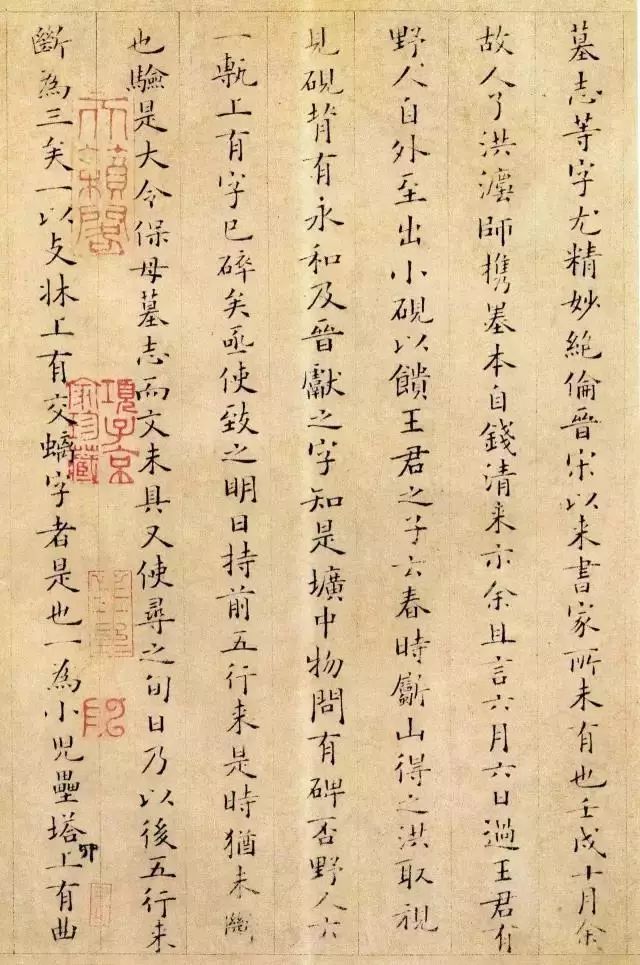 墓志等字尤精妙絶倫晉宋以来書家所未有也壬戌十月余
故人了洪灋師攜墨本自錢清来示余且言六月六日過王君有
野人自外至出小硯以饋王君之子云春時斸山得之洪取視
見硯背有永和及晉獻之字知是壙中物問有碑否野人云
一甎上有字已碎矣亟使致之明日持前五行来是時猶未斷
也驗是大令保母墓志而文未具又使尋之旬日乃以後五行来
斷為三矣一以攴牀上有交螭字者是也一為小兒壘塔上有曲
卯
天籟閣
項子京家珍藏